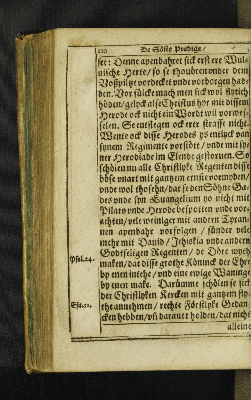 220 De Söste Predige/
set: Denne apenbahret sick erst ere Wul-
nische Herte/ so se thouören onder dem
Voßpiltze vordecket vnde vorborgen had-
den. Vor sülcke mach men sick wol flytich
höden/ gelyck alse Christus hyr mit dissem
Herode ock nicht ein Wordt wil vorwes-
selen. Se entflegen ock erer straffe nicht.
Wente ock disse Herodes ys entlyck van
synem Regimente vorstött/ vnde mit sy-
ner Herodiade im Elende gestoruen. So
schölen nu alle Christlyke Regenten disse
böse ynart mit gantzem ernste vormyden/
vnde wol thosehn/ dat se den Söhne Ga-
des vnde syn Euangelium yo nicht mit
Pilato vnde Herode bespotten vnde vor-
achten/ velt weiniger mit andern Tyran-
nen apenbahr vorfolgen / sünder vele
mehr mit Dauid / Jehiskia vnde andern
Godtseligen Regenten / de Döre wydt
maken/ dat disse grothe Köninck der Ehre
Psal.24. by enen intehe/ vnd eine ewige Waninge
by enen make. Darümme schölen se sick
der Christlyken Kercken mit gantzem fly-
Esa.32. the annehmen/ rechte Förstlyke Gedan-
cken hebben/ vñ darauer holden/ dat nicht
alleine